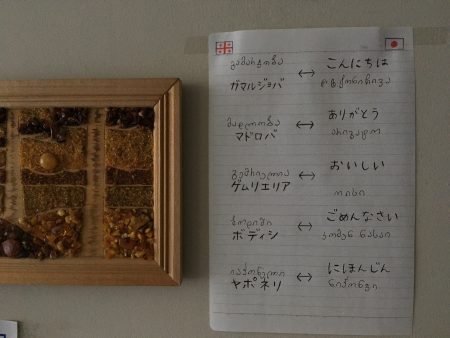 გამარჯობა ↔ こんにちは
ガマルジョバ
მადლობა ↔ ありがとう
マドロバ არიგადო
გემრიელია ↔ おいしい
ゲムリエリア ოისი
ბოდიში ↔ ごめんなさい
ボディシ გომენ ნასაი
იაპონელი ↔ にほんじん
ヤポネリ